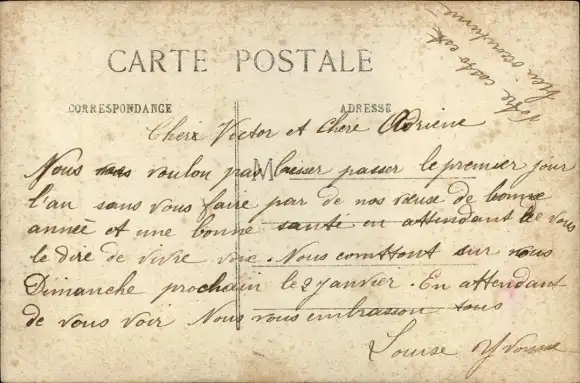 CARTE POSTALE
CORRESPONDANCE
ADRESSE
Cher Victor et chere Adriene
Nous voulon pas laisser passer le premier jour
l'an sans vous faire par de nos vœuse de bonne
anneé et une bonne santé en attendant de vous
le dire de vive voix. Nous comttont sur vous
Dimanche prochain le 2 janvier. En attendant
de vous voir Nous vous embrasson tous
Louise Yvonne
Votre carte est
bien
M